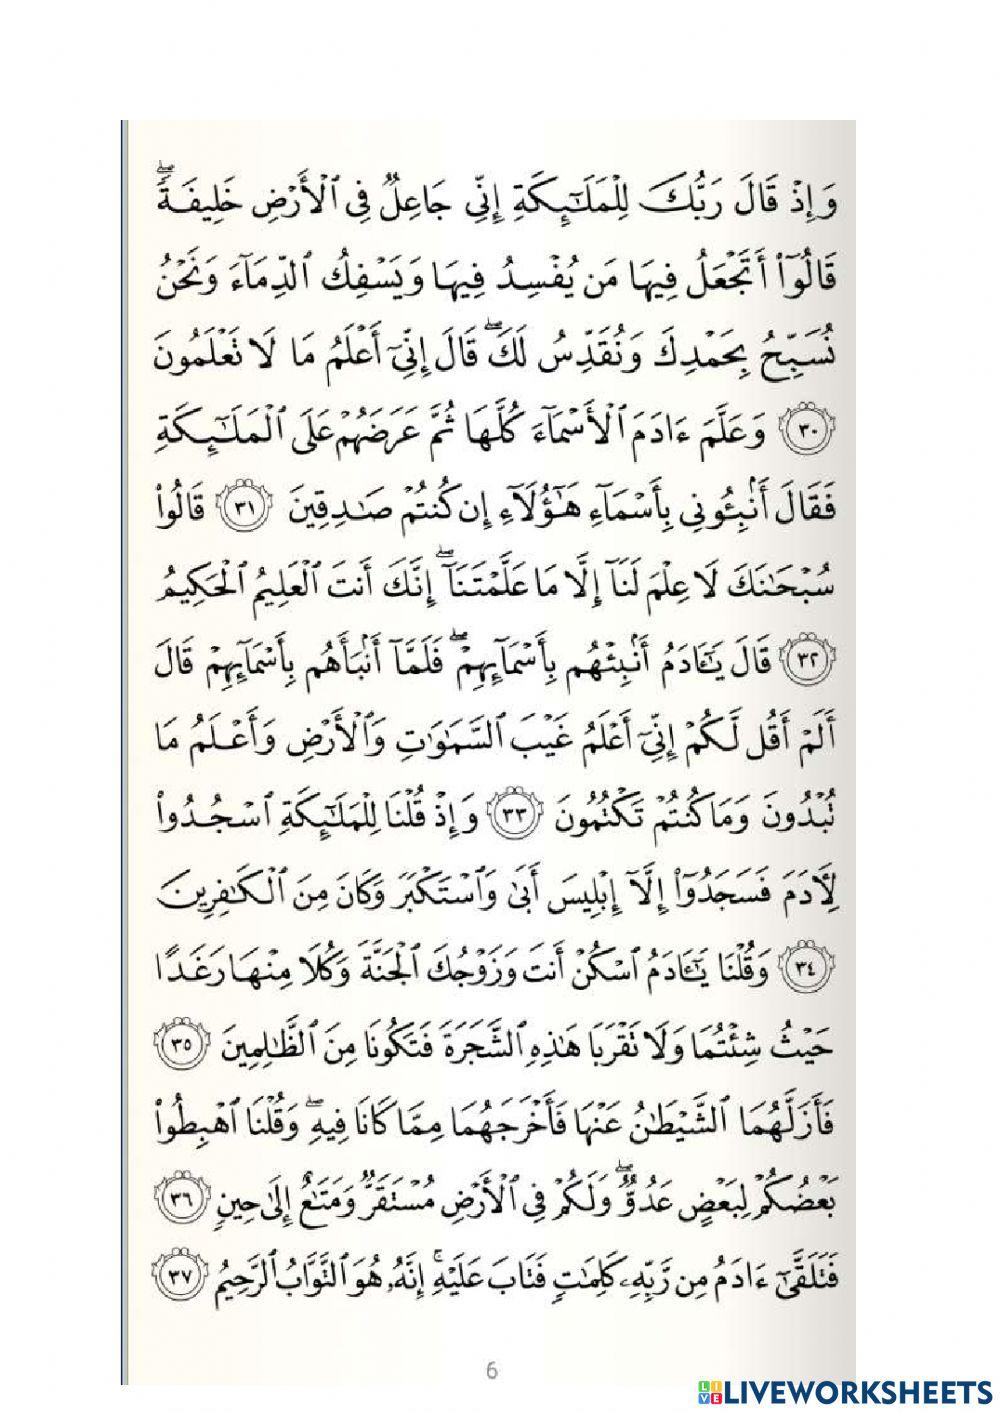 وَإِذْ قَالَ رَبُّكَ لِلْمَلَـٰٓئِكَةِ إِنِّى جَاعِلٌ فِى ٱلْأَرْضِ خَلِيفَةً ۖ
قَالُوٓا۟ أَتَجْعَلُ فِيهَا مَن يُفْسِدُ فِيهَا وَيَسْفِكُ ٱلدِّمَآءَ وَنَحْنُ
نُسَبِّحُ بِحَمْدِكَ وَنُقَدِّسُ لَكَ ۖ قَالَ إِنِّىٓ أَعْلَمُ مَا لَا تَعْلَمُونَ
٣٠ وَعَلَّمَ ءَادَمَ ٱلْأَسْمَآءَ كُلَّهَا ثُمَّ عَرَضَهُمْ عَلَى ٱلْمَلَـٰٓئِكَةِ
فَقَالَ أَنۢبِـُٔونِى بِأَسْمَآءِ هَـٰٓؤُلَآءِ إِن كُنتُمْ صَـٰدِقِينَ ٣١ قَالُوا۟
سُبْحَـٰنَكَ لَا عِلْمَ لَنَآ إِلَّا مَا عَلَّمْتَنَآ ۖ إِنَّكَ أَنتَ ٱلْعَلِيمُ ٱلْحَكِيمُ
٣٢ قَالَ يَـٰٓـَٔادَمُ أَنۢبِئْهُم بِأَسْمَآئِهِمْ ۖ فَلَمَّآ أَنۢبَأَهُم بِأَسْمَآئِهِمْ قَالَ
أَلَمْ أَقُل لَّكُمْ إِنِّىٓ أَعْلَمُ غَيْبَ ٱلسَّمَـٰوَٰتِ وَٱلْأَرْضِ وَأَعْلَمُ مَا
تُبْدُونَ وَمَا كُنتُمْ تَكْتُمُونَ ٣٣ وَإِذْ قُلْنَا لِلْمَلَـٰٓئِكَةِ ٱسْجُدُوا۟
لِـَٔادَمَ فَسَجَدُوٓا۟ إِلَّآ إِبْلِيسَ أَبَىٰ وَٱسْتَكْبَرَ وَكَانَ مِنَ ٱلْكَـٰفِرِينَ
٣٤ وَقُلْنَا يَـٰٓـَٔادَمُ ٱسْكُنْ أَنتَ وَزَوْجُكَ ٱلْجَنَّةَ وَكُلَا مِنْهَا رَغَدًا
حَيْثُ شِئْتُمَا وَلَا تَقْرَبَا هَـٰذِهِ ٱلشَّجَرَةَ فَتَكُونَا مِنَ ٱلظَّـٰلِمِينَ ٣٥
فَأَزَلَّهُمَا ٱلشَّيْطَـٰنُ عَنْهَا فَأَخْرَجَهُمَا مِمَّا كَانَا فِيهِ ۖ وَقُلْنَا ٱهْبِطُوا۟
بَعْضُكُمْ لِبَعْضٍ عَدُوٌّ ۖ وَلَكُمْ فِى ٱلْأَرْضِ مُسْتَقَرٌّ وَمَتَـٰعٌ إِلَىٰ حِينٍ ٣٦
فَتَلَقَّىٰٓ ءَادَمُ مِن رَّبِّهِۦ كَلِمَـٰتٍ فَتَابَ عَلَيْهِ ۚ إِنَّهُۥ هُوَ ٱلتَّوَّابُ ٱلرَّحِيمُ ٣٧
6
LIVEWORKSHEETS